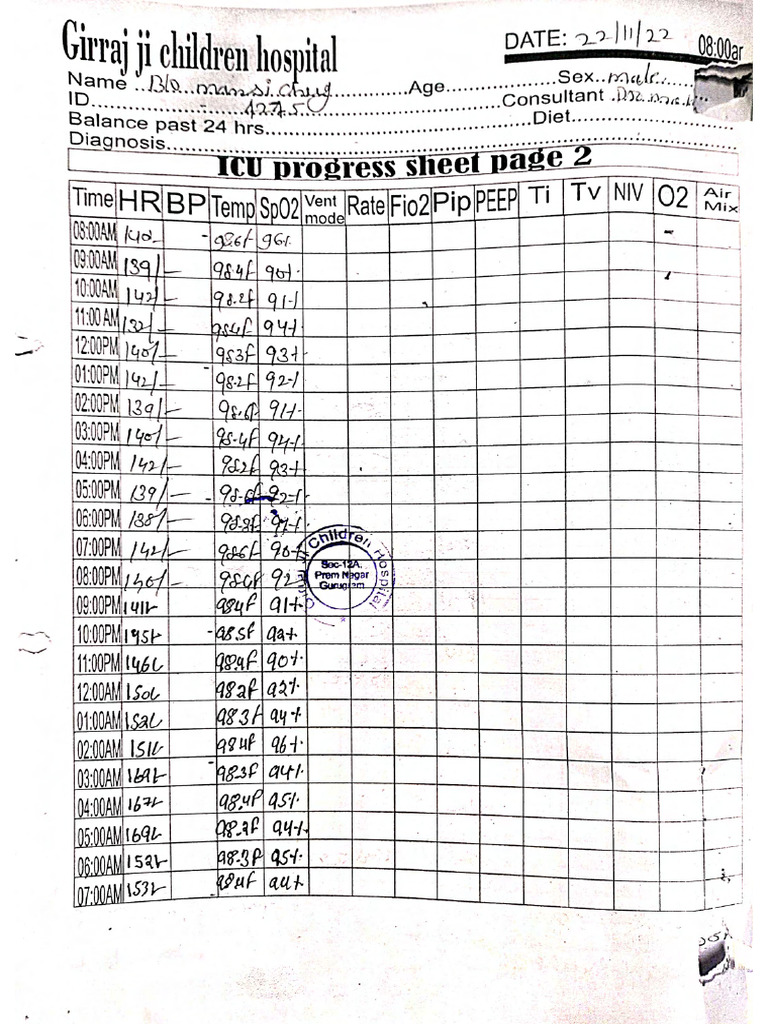 Girraj ji children hospital
DATE: 22/11/22 08:00a
Name ..B/o mansi chug..........Age...............Sex..male......
ID.....................4275............................Consultant .Dr.
Balance past 24 hrs....................................Diet........................
Diagnosis..............................................................................
ICU progress sheet page 2
Time HR BP Temp SpO2 Vent mode Rate Fio2 Pip PEEP Ti Tv NIV O2 Air Mix
08:00AM 140 - 98.6f 96%
09:00AM 139/- 98.4f 90%
10:00AM 142/- 98.2f 91%
11:00 AM 132/- 98.4f 94%
12:00PM 140/- 98.3f 93%
01:00PM 142/- 98.2f 92%
02:00PM 139/- 98.6f 91%
03:00PM 140/- 98.4f 94%
04:00PM 142/- 98.2f 93%
05:00PM 139/- 98.6f 92%
06:00PM 138/- 98.3f 91%
07:00PM 142/- 98.6f 90%
08:00PM 140/- 98.6f 92
Children Hospital
Sec-12A,
Prem Nagar
Gurugram
09:00PM 141 98.4f 91%
10:00PM 145 - 98.5f 92%
11:00PM 146 98.4f 90%
12:00AM 150 98.2f 92%
01:00AM 152 98.3f 94%
02:00AM 151 98.4f 96%
03:00AM 169 98.3f 94%
04:00AM 167 98.4f 95%
05:00AM 169 98.2f 94%
06:00AM 152 98.3f 95%
07:00AM 153 98.4f 94%